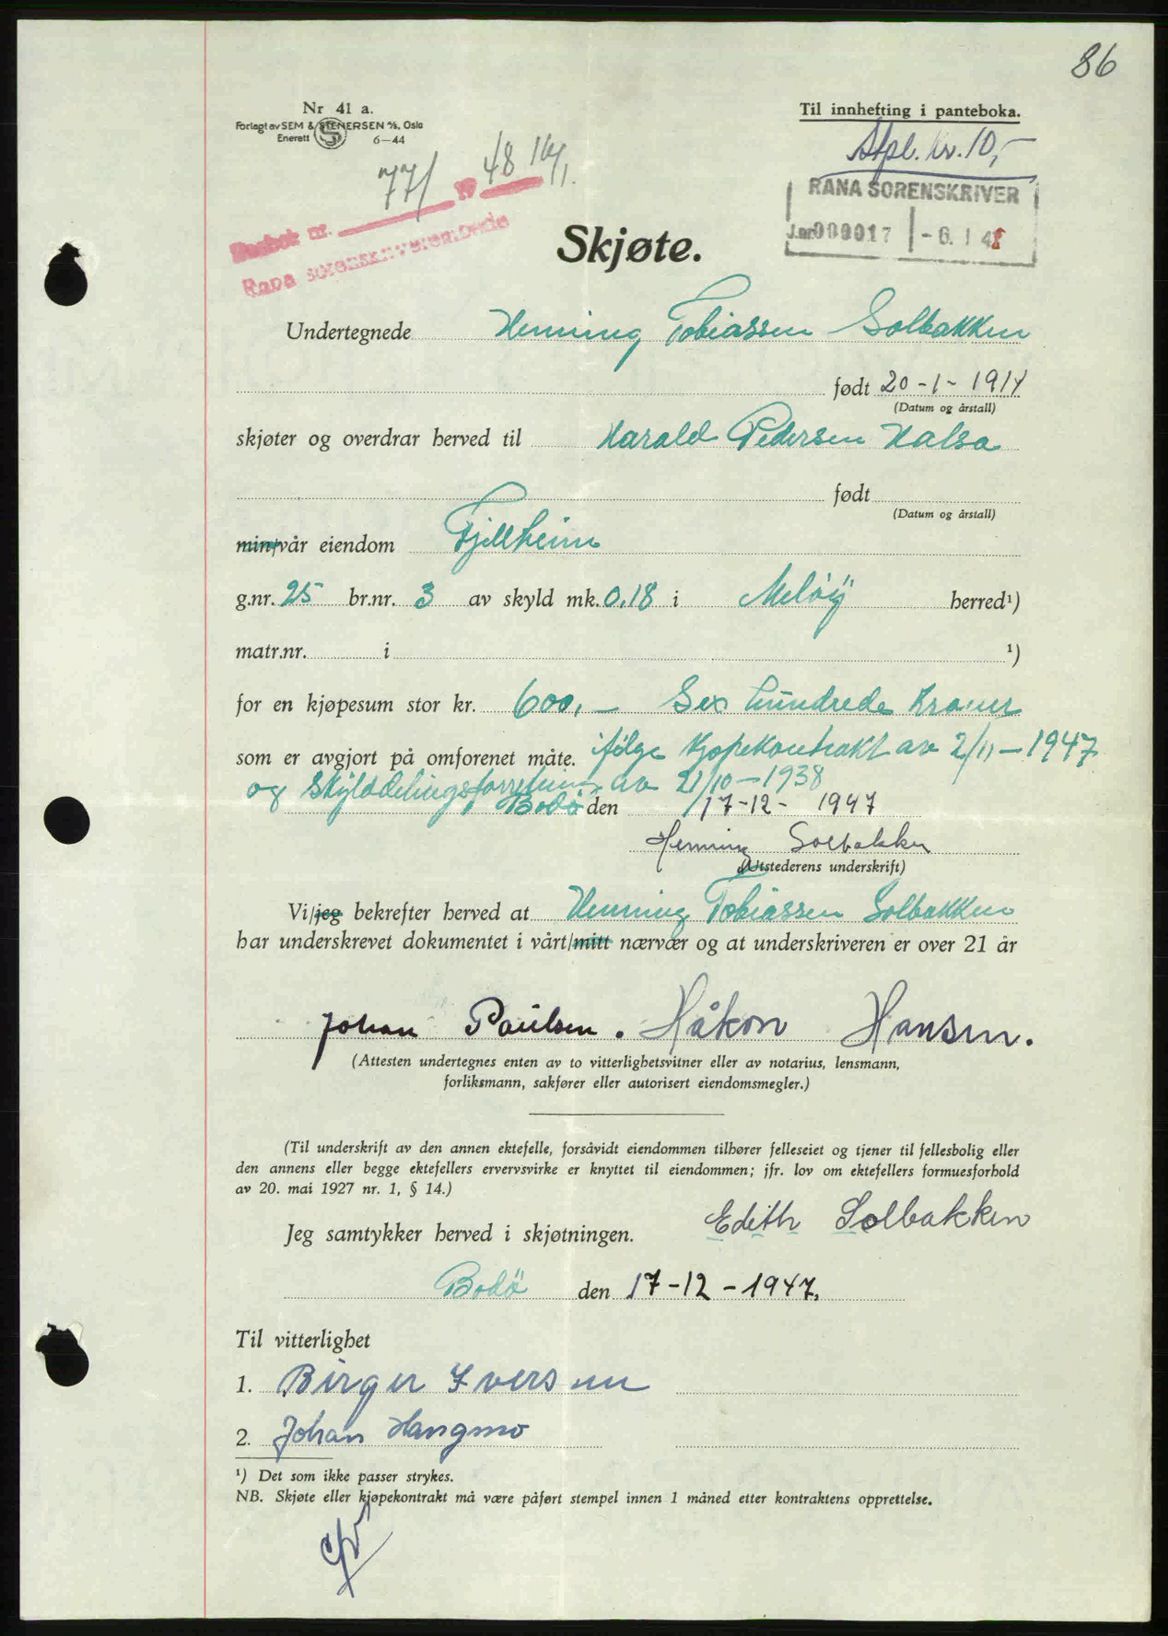 86
Nr 41 a.
Forlagt av SEM & STENERSEN A/S, Oslo
Enerett 6-44
Til innhefting i panteboka.
Stpl. kr. 10,-
77/ 19 48
Dagbok nr.
Rana sorenskriverembede
RANA SORENSKRIVER
J.nr 000017 - 6. 1 48
Skjøte.
Undertegnede Henning Tobiassen Solbakken
født 20-1-1914
(Datum og årstall)
skjøter og overdrar herved til Harald Pedersen Halsa
født
(Datum og årstall)
min/vår eiendom Fjellheim
g.nr. 25 br.nr. 3 av skyld mk. 0.18 i Meløy herred¹)
matr.nr. i ¹)
for en kjøpesum stor kr. 600,- Sex hundrede Kroner
som er avgjort på omforenet måte. ifølge Kjøpekontrakt av 2/11-1947
og Skylddelingsforretning av 21/10-1938
Bodø den 17-12-1947
Henning Solbakken
(Utstederens underskrift)
Vi/jeg bekrefter herved at Henning Tobiassen Solbakken
har underskrevet dokumentet i vårt/mitt nærvær og at underskriveren er over 21 år
Johan Paulsen. Håkon Hansen.
(Attesten undertegnes enten av to vitterlighetsvitner eller av notarius, lensmann,
forliksmann, sakfører eller autorisert eiendomsmegler.)
(Til underskrift av den annen ektefelle, forsåvidt eiendommen tilhører felleseiet og tjener til fellesbolig eller
den annens eller begge ektefellers ervervsvirke er knyttet til eiendommen; jfr. lov om ektefellers formuesforhold
av 20. mai 1927 nr. 1, § 14.)
Edith Solbakken
Jeg samtykker herved i skjøtningen.
Bodø den 17-12-1947.
Til vitterlighet
1. Birger Iversen
2. Johan Hangmo
¹) Det som ikke passer strykes.
NB. Skjøte eller kjøpekontrakt må være påført stempel innen 1 måned etter kontraktens opprettelse.